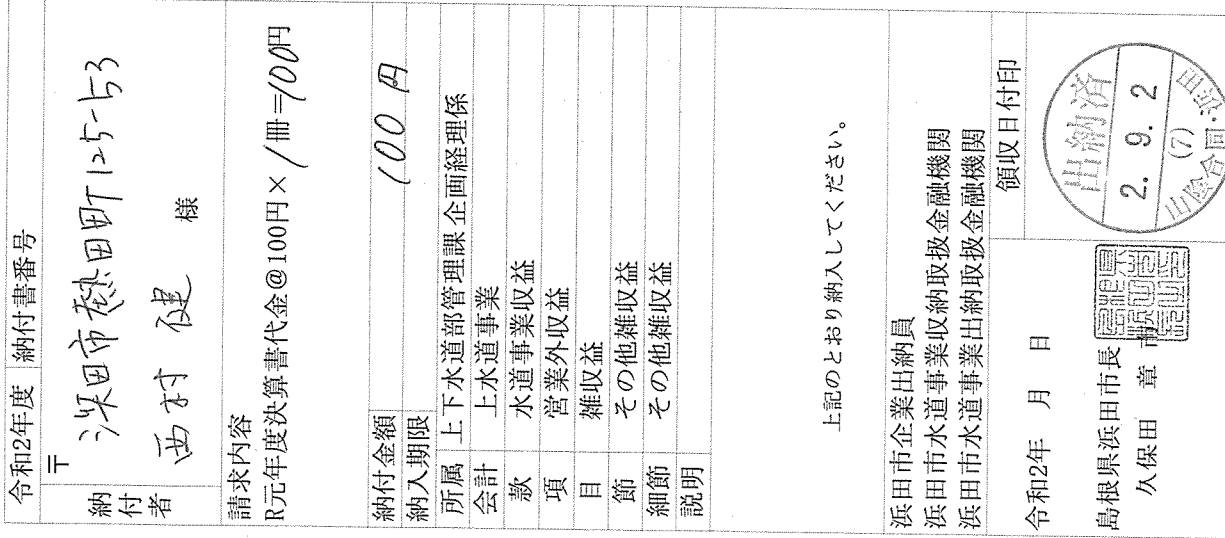 令和2年度 納付書番号
納付者
〒
浜田市熱田町125-53
西村 健 様
請求内容
R元年度決算書代金@100円×1冊=100円
納付金額 100円
納入期限
所属 上下水道部管理課企画経理係
会計 上水道事業
款 水道事業収益
項 営業外収益
目 雑収益
節 その他雑収益
細節 その他雑収益
説明
上記のとおり納入してください。
浜田市企業出納員
浜田市水道事業収納取扱金融機関
浜田市水道事業出納取扱金融機関
令和2年 月 日
島根県浜田市長
久保田 章 市
領収日付印
出納済
2. 9. 2
(7)
山陰合同・浜田